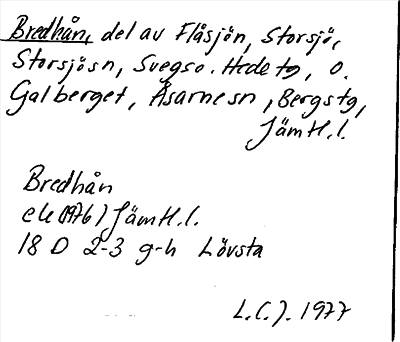 Bredhån, del av Flåsjön, Storsjö,
Storsjösn, Svegso. Hede tg, o.
Galberget, Åsarnesn, Bergstg,
Jämtl.l.
Bredhån
ek (1976) Jämtl.l.
18 D 2-3 g-h Lövsta
L.C.J. 1977